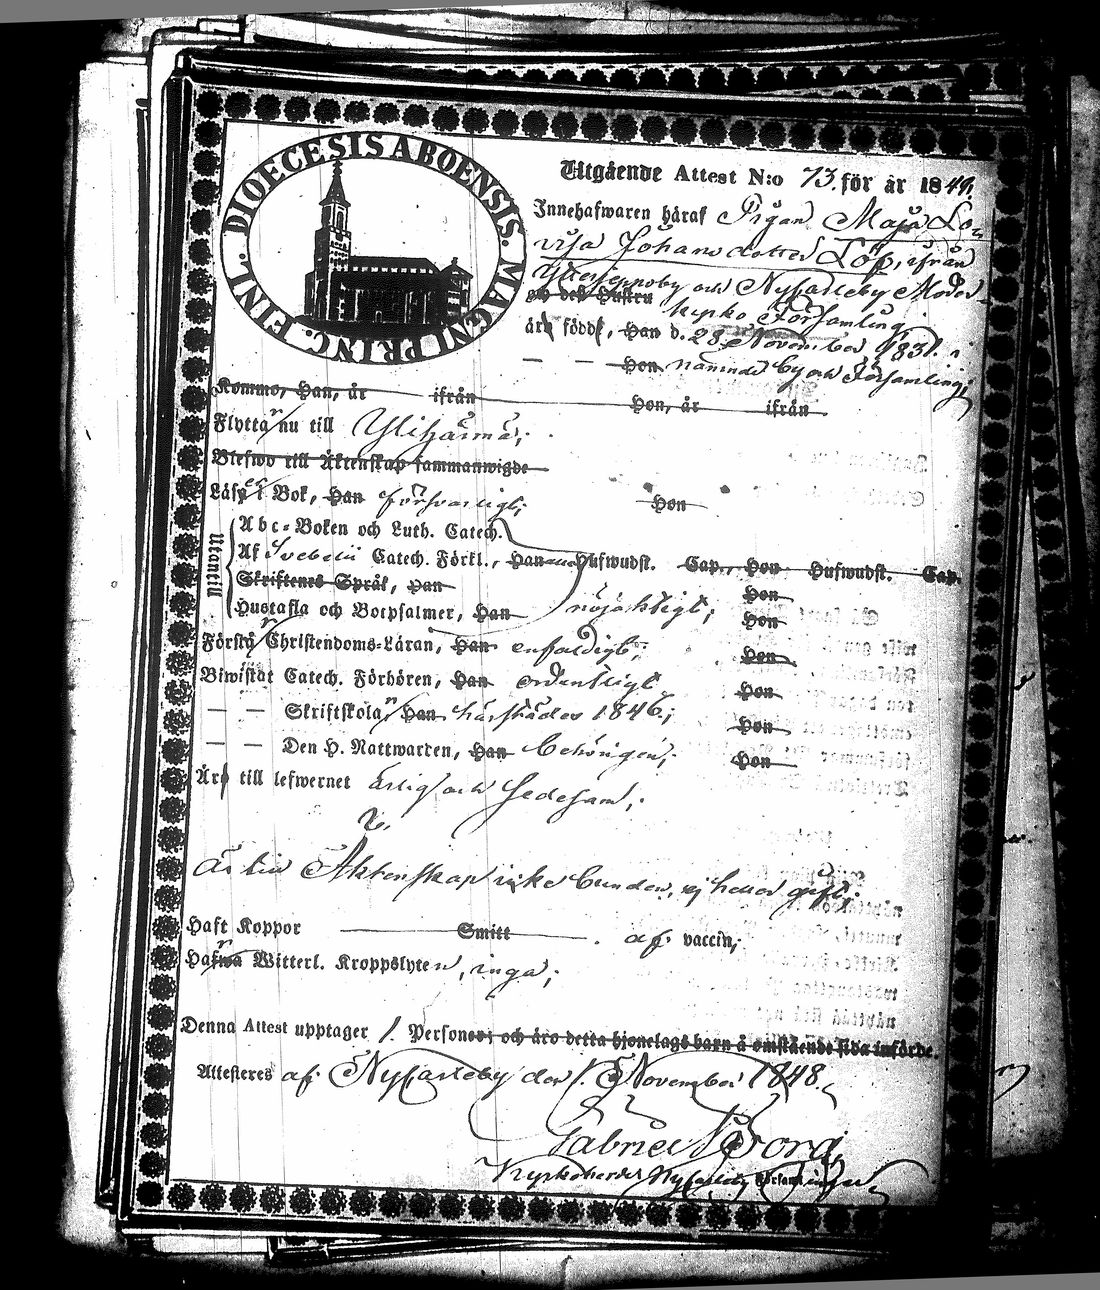 DIOECESIS ABOENSIS. MAGNI PRINC. FINL.
Utgående Attest N:o 73. för år 1848.
Innehafwaren häraf Pigan Maja Lo-
visa Johansdotter Löp, ifrån
Ytterjeppoby och Nykarleby Moder-
och dess Hustru kyrko Församling
äro född, Han d. 28 November 1831. i
— — Hon nämnde by och Församling;
Kommo, Han, år ifrån Hon, år ifrån
Flyttar nu till Ylihärmä;
Blefwo till Äktenskap sammanwigde
Läser i Bok, Han försvarligt; Hon
Utantill
Abc-Boken och Luth. Catech.
Af Svebelii Catech. Förkl., Han Hufwudst. Cap., Hon Hufwudst. Cap.
Skriftenes Språk, Han Hon
Hustafla och Botpsalmer, Han nöjaktigt; Hon
Förstår Christendoms-Läran, Han enfaldigt; Hon
Biwistat Catech. Förhören, Han ordentligt Hon
— — Skriftskolan, Han härstädes 1846; Hon
— — Den H. Nattwarden, Han behörigen; Hon
Är till lefwernet ärlig och sedesam;
är till Äktenskap icke bunden, ej heller gift;
Haft Koppor Smitt af vaccin;
Hafwa Witterl. Kroppslyten, inga;
Denna Attest upptager 1. Personer; och äro detta hjonelags barn å omstående sida införde.
Attesteres af Nykarleby den 1. November 1848.
Gabriel Borg
Kyrkoherde i Nykarleby Församlingar